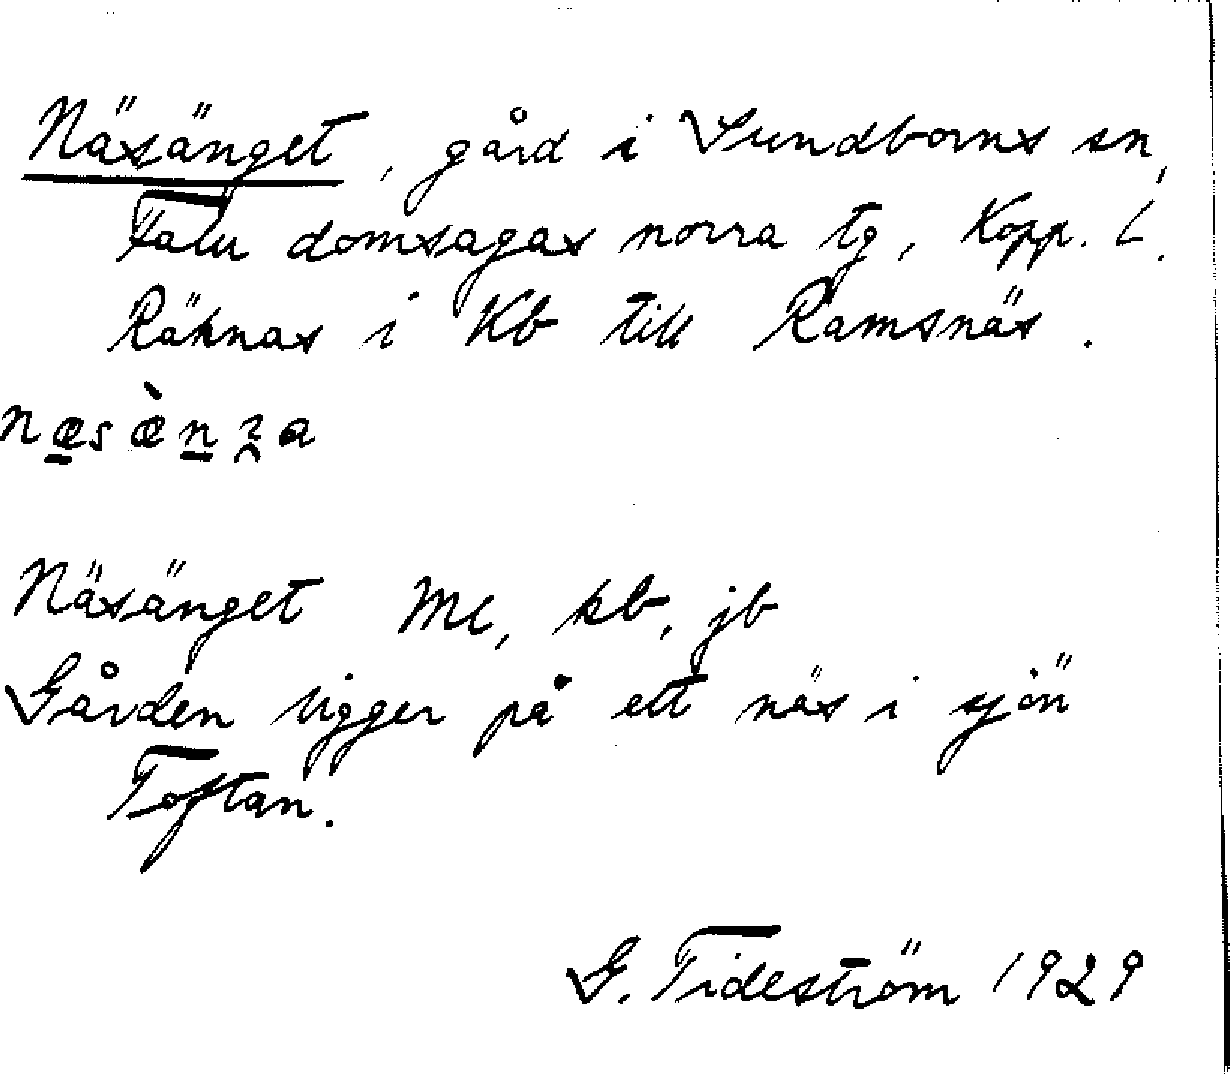 Näsänget, gård i Sundborns sn,
Falu domsagas norra tg, Kopp. L.
Räknas i Kb till Ramsnäs.
Näsänget Mc, kb, jb
Gården ligger på ett näs i sjön
Toftan.
G. Tideström 1929